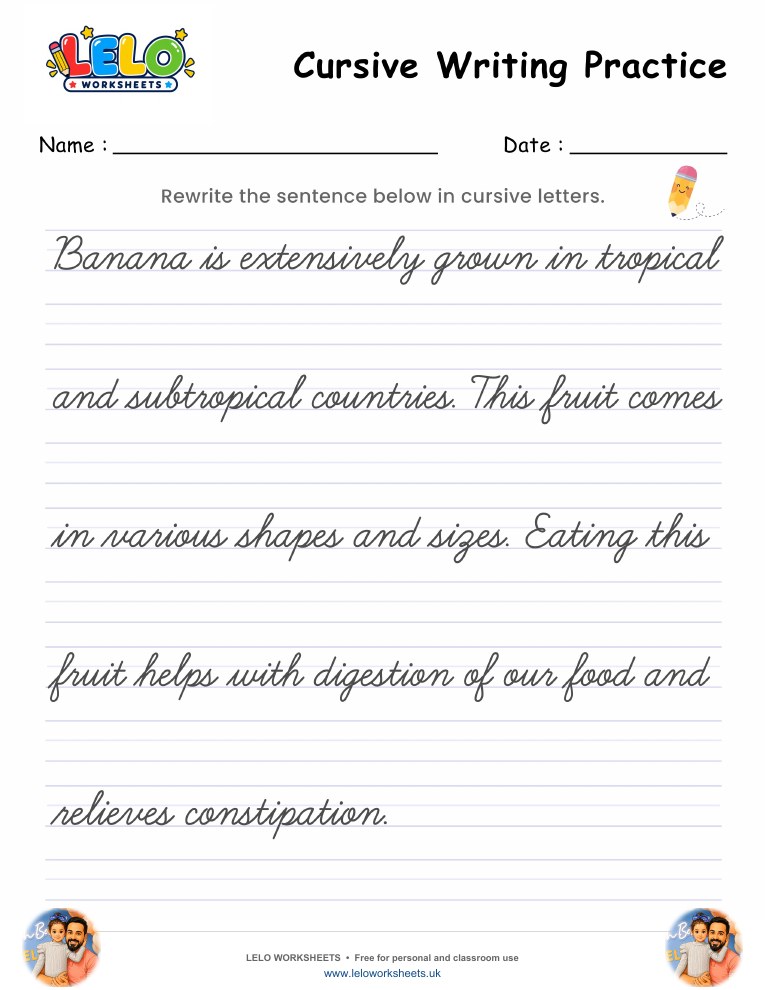 LELO
WORKSHEETS
Cursive Writing Practice
Name : Date :
Rewrite the sentence below in cursive letters.
Banana is extensively grown in tropical
and subtropical countries. This fruit comes
in various shapes and sizes. Eating this
fruit helps with digestion of our food and
relieves constipation.
LELO WORKSHEETS • Free for personal and classroom use
www.leloworksheets.uk